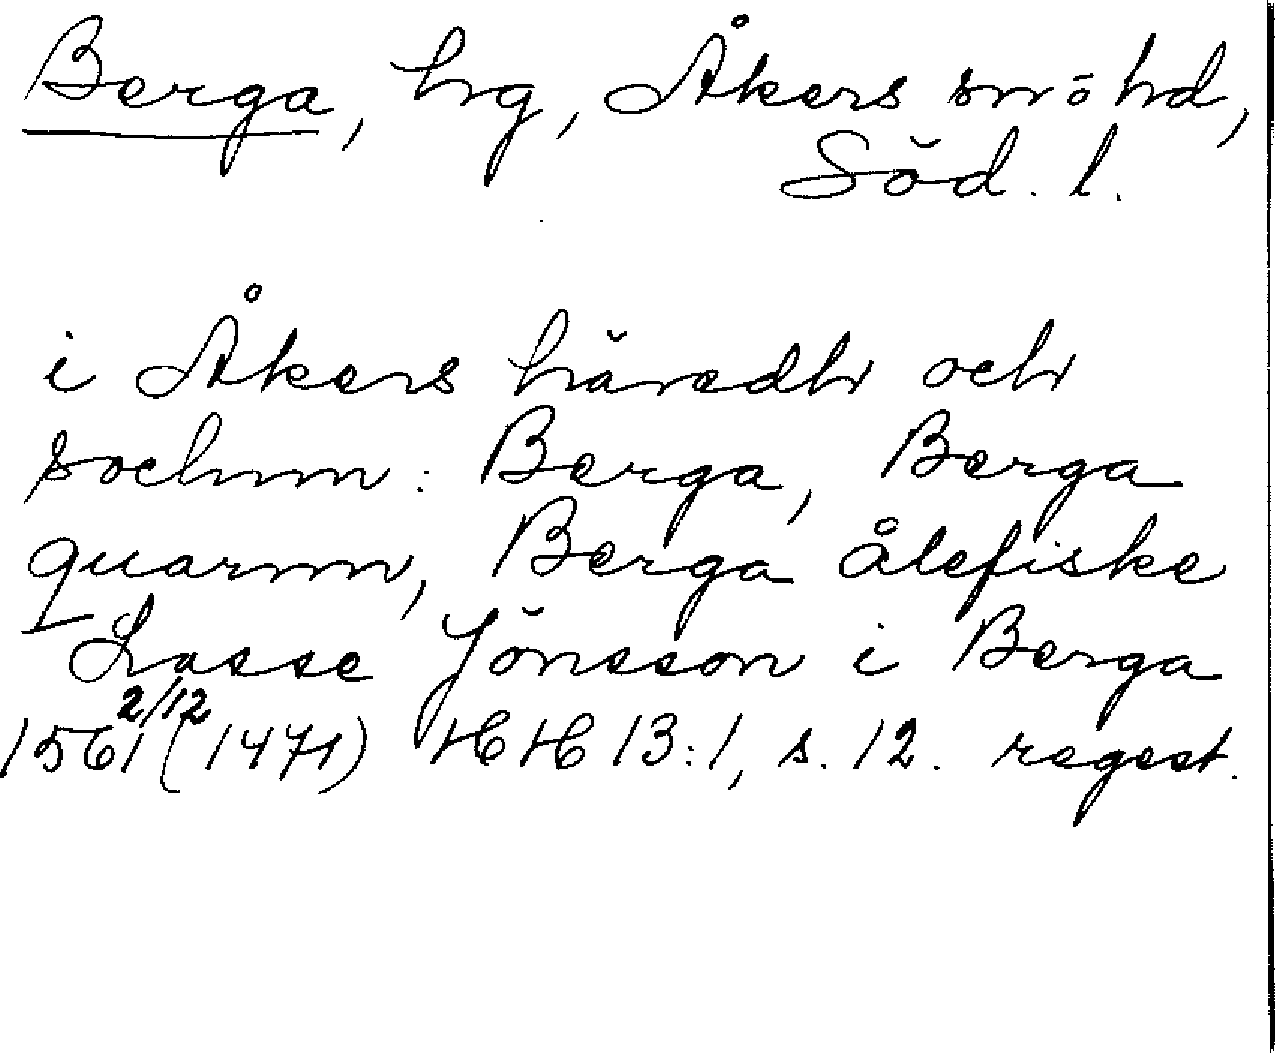 Berga, hg, Åkers sn o hd,
Söd. l.
i Åkers häredh och
sochnn: Berga, Berga
quarnn, Berga ålefiske
Lasse Jönsson i Berga
2/12
1561 (1471) HH 13:1, s. 12. regest.